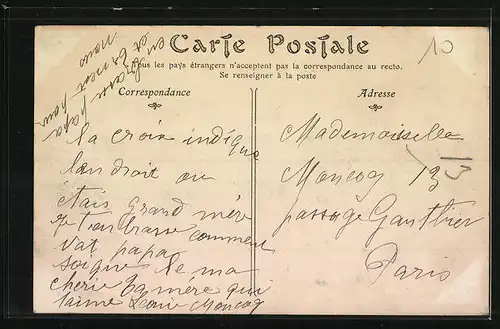 10
Carte Postale
Tous les pays étrangers n'acceptent pas la correspondance au recto.
Se renseigner à la poste
Correspondance
Adresse
la croix indique
landroit ou
etais grand mère
je tanbrasse comment
vat papa
soigne le ma
cherie ta mère qui
taime Leonie Moncoq
en
et ta mère pour
nous
papa
Mademoiselle
Moncoq 13
passage Gauthier
Paris
13